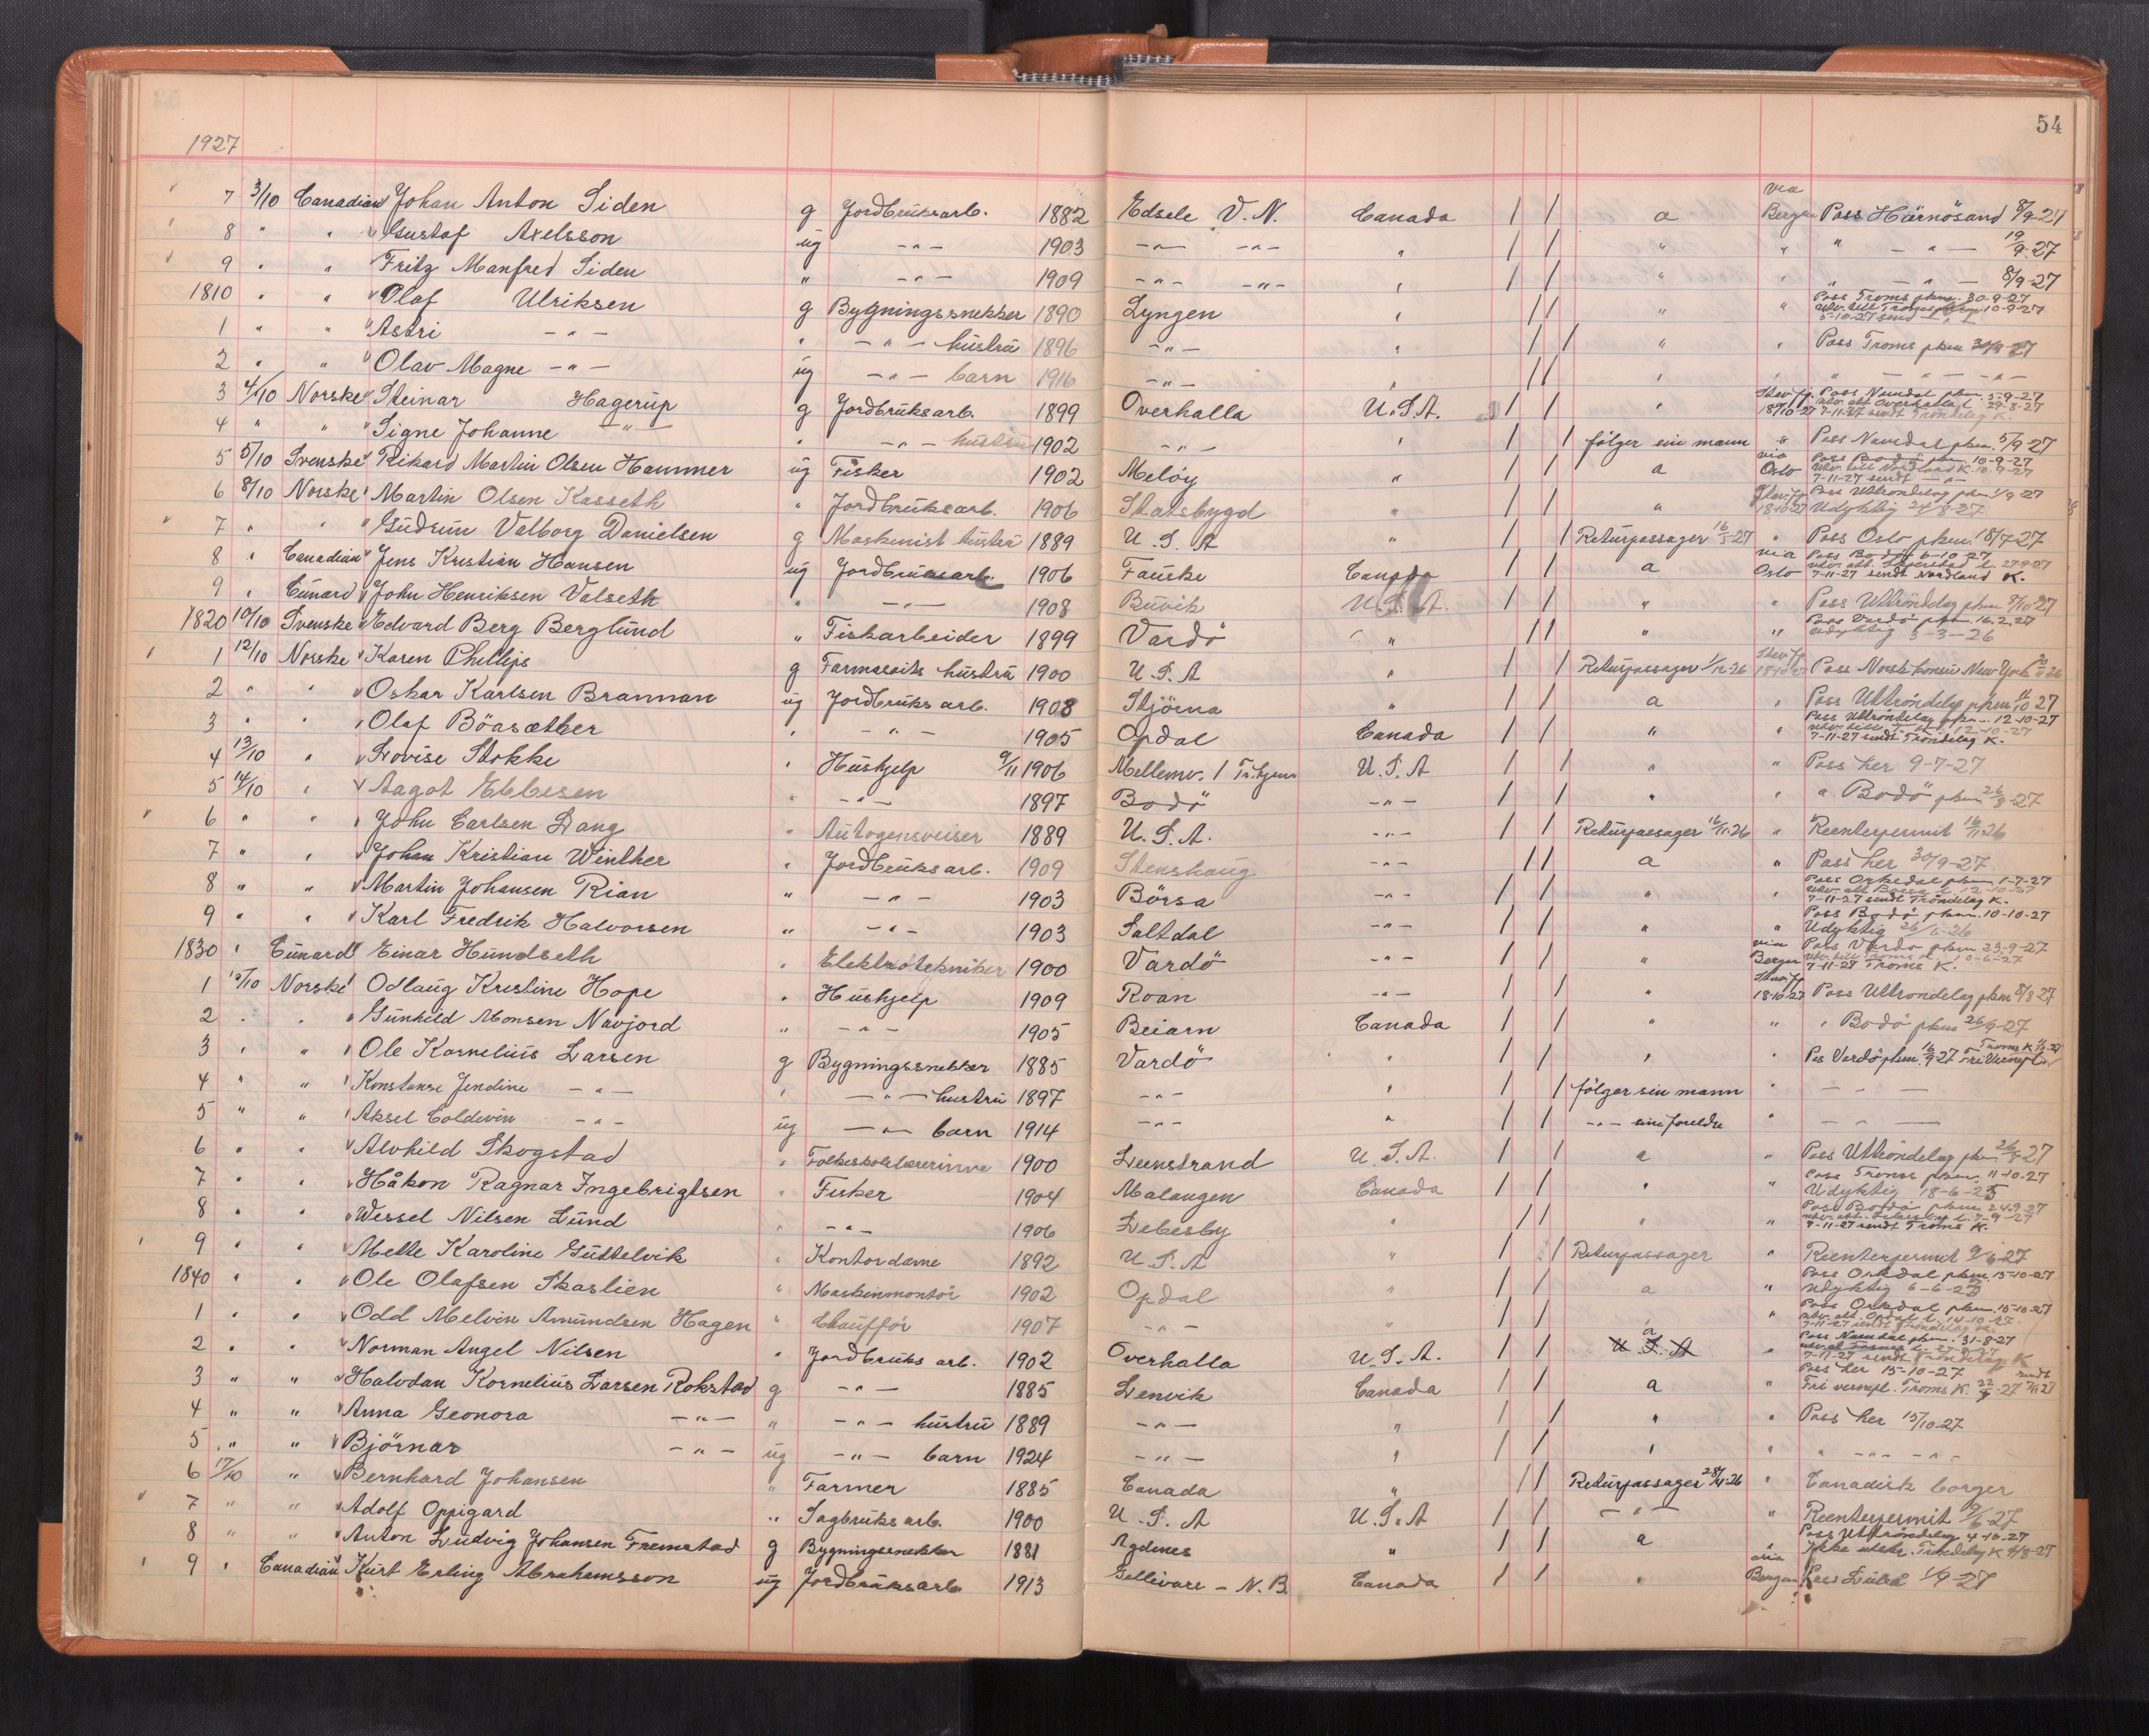 54
1927
7 3/10 Canadian Johan Anton Siden g Jordbruksarb. 1882 Edsele V. N. Canada / / a via Bergen Pass Härnösand 8/9-27
8 " " Gustaf Axelsson ug -"- 1903 -"- -"- " / / " " " -"- 19/9-27
9 " " Fritz Manfred Siden " -"- 1909 -"- -"- " / / " " " -"- 8/9-27
1810 " " Olaf Ulriksen g Bygningssnekker 1890 Lyngen " / / " " Pass Troms pkm. 30-9-27
1 " " Astri -"- " -"- hustru 1896 -"- " / / " " Pass Troms pkm 30/9 27
2 " " Olav Magne -"- ug -"- barn 1916 -"- " / / " " " -"- -"-
3 4/10 Norske Steinar Hagerup g Jordbruksarb. 1899 Overhalla U.S.A. / / " Stav.fj. 18/10-27 Pass Namdal pkm. 5-9-27 utv. att Overhalla l. 29-8-27 7-11-27 sendt Trøndelag K.
4 " " Signe Johanne -"- " -"- hustru 1902 -"- " / / følger sin mann " Pass Namdal pkm. 5/9-27
5 5/10 Svenske Rikard Martin Olsen Hammer ug Fisker 1902 Meløy " / / a via Oslo Pass Bodö pkm 10-9-27 Utv. till Nordland K. 10-9-27 7-11-27 sendt -"-
6 8/10 Norske Martin Olsen Kasseth " Jordbruksarb. 1906 Statsbygd " / / " Stav.fj. 18-10-27 Pass Uttrøndelag pkm 1/9 27 Udyktig 24/8-27
7 " " Gudrun Valborg Danielsen g Maskinist hustru 1889 U. S. A " / / Returpassager 16/5-27 " Pass Oslo pkm. 18/7-27
8 " Canadian Jens Kristian Hansen ug Jordbruksarb. 1906 Fauske Canada / / a via Oslo Pass Bodö 6-10-27 7-11-27 sendt Nordland K.
9 " Cunard John Henriksen Valseth " -"- 1908 Buvik U.S.A. / / " " Pass Uttröndelag pkm 9/10 27
1820 10/10 Svenske Edvard Berg Berglund " Fiskarbeider 1899 Vardö " / / " " Pass Vardö pkm. 16.2.27 Udyktig 5-3-26
1 12/10 Norske Karen Phillips g Farmereits hustru 1900 U. S. A " / / Returpassager 1/12-26 Stav.fj. Pass Norsk konsu New York
2 " " Oskar Karlsen Brannan ug Jordbruks arb. 1908 Stjörna " / / a " Pass Uttröndelag pkm 11/10 27
3 " " Olaf Böasæther " -"- 1905 Opdal Canada / / " " Pass Uttröndelag pkm. 12-10-27 7-11-27 sendt Tröndelag K.
4 13/10 " Lovise Stokke " Hushjelp 9/11 1906 Mellemv. 1 Tr.hjem U.S.A / / " " Pass her 9-7-27
5 14/10 " Aagot Ebbesen " -"- 1897 Bodö -"- / / " " " Bodö pkm 26/8-27
6 " " John Carlsen Lang " Autogensveiser 1889 U.S.A. -"- / / Returpassager 16/11-26 " Reenterpermit 16/11-26
7 " " Johan Kristian Winther " Jordbruksarb. 1909 Stenshaug -"- / / a " Pass her 30/9-27
8 " " Martin Johansen Rian " -"- 1903 Börsa -"- / / " " Pass Orkedal pkm 1-7-27 utv. att Börsa l. 12-10-27 7-11-27 sendt Tröndelag K.
9 " " Karl Fredrik Halvorsen " -"- 1903 Saltdal -"- / / " " Pass Bodö pkm. 10-10-27 Udyktig 26/6-26
1830 " Cunard Einar Hundseth " Elektrotekniker 1900 Vardö -"- / / " via Bergen Pass Vardö pkm 23-9-27 7-11-27 Troms K.
1 15/10 Norske Odlaug Kristine Hope " Hushjelp 1909 Roan -"- / / " Stav.fj. 18-10-27 Pass Uttrondelag pkm 8/8 27
2 " " Gunhild Monsen Navjord " -"- 1905 Beiarn Canada / / " " " Bodö pkm 26/9-27
3 " " Ole Kornelius Larsen g Bygningssnekker 1885 Vardö " / / " " Pas Vardö pkm. 16/9 27 Fri Vernepl.
4 " " Konstanse Jendine -"- " -"- hustru 1897 -"- " / / følger sin mann " -"-
5 " " Aksel Coldevin -"- ug -"- barn 1914 -"- " / / -"- sine foreldre " -"-
6 " " Alvhild Skogstad " Folkeskolelærerinne 1900 Leenstrand U.S.A. / / a " Pass Uttröndelag pkm 26/8-27
7 " " Håkon Ragnar Ingebrigtsen " Fisker 1904 Malangen Canada / / " " Pass Troms pkm. 11-10-27 Udyktig 18-6-25
8 " " Wessel Nilsen Lund " -"- 1906 Lebesby " / / " " Pass Bodö pkm 24.9.27 7-11-27 sendt Troms K.
9 " " Mette Karoline Guttelvik " Kontordame 1892 U. S. A " / / Returpassager " Reenterpermit 9/6-27
1840 " " Ole Olafsen Skaslien " Maskinmontör 1902 Opdal " / / a " Pass Orkdal pkm. 15-10-27 Udyktig 6-6-25
1 " " Odd Melvin Amundsen Hagen " Chauffør 1907 -"- " / / " " Pass Orkedal pkm. 15-10-27 utv. att. Opdal l. 14-10-27 7-11-27 sendt Tröndelag K.
2 " " Norman Angel Nilsen " Jordbruks arb. 1902 Overhalla U.S.A. / / U S A a " Pass Namdal pkm. 31-8-27 7-11-27 sendt Tröndelag K
3 " " Halvdan Kornelius Larsen Rokstad g -"- 1885 Lenvik Canada / / a " Pass her 15-10-27 Fri vernepl. Troms K. 22/9-27 sendt 7/11 27
4 " " Anna Geonora -"- " -"- hustru 1889 -"- " / / " " Pass her 15/10-27
5 " " Björnar -"- ug -"- barn 1924 -"- " / / " " " -"- -"-
6 17/10 " Bernhard Johansen " Farmer 1885 Canada " / / Returpassager 28/11-26 " Canadisk borger
7 " " Adolf Oppigard " Sagbruks arb. 1900 U. S. A U.S.A / / -"- " Reenterpermit 9/6-27
8 " " Anton Ludvig Johansen Fremstad g Bygningssnekker 1881 Agdenes " / / a " Pass Uttröndelag 4-10-27 Ikke utskr. Tröndelag K
9 " Canadian Kurt Erling Abrahamsson ug Jordbruksarb 1913 Gellivare - N.B. Canada / / " via Bergen Pass Luleå 1/9-27